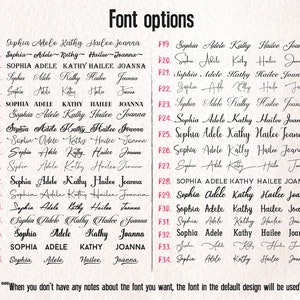 Font options
Sophia Adele Kathy Hailee Joanna
Sophia Adele Kathy Hailee Joanna
SOPHIA ADELE KATHY HAILEE JOANNA
Sophia Adele Kathy Hailee Joanna
Sophia Adele Kathy Hailee Joanna
SOPHIA ADELE KATHY HAILEE JOANNA
Sophia Adele Kathy Hailee Joanna
Sophia Adele Kathy Hailee Joanna
Sophia Adele Kathy Hailee Joanna
Sophia Adele Kathy Hailee Joanna
Sophia Adele Kathy Hailee Joanna
Sophia Adele Kathy Hailee Joanna
Sophia Adele Kathy Hailee Joanna
Sophia Adele Kathy Hailee Joanna
Sophia Adele Kathy Hailee Joanna
Sophia Adele Kathy Joanna
SOPHIA ADELE KATHY JOANNA
Sophia Adele Hailee Joanna
F19. Sophia Adele Kathy Hailee Joanna
F20. Sophia Adele Kathy Hailee Joanna
F21. Sophia Adele Kathy Hailee Joanna
F22. Sophia Adele Kathy Hailee Joanna
F23. Sophia Adele Kathy Hailee Joanna
F24. Sophia Adele Kathy Hailee Joanna
F25. Sophia Adele Kathy Hailee Joanna
F26. Sophia Adele Kathy Hailee Joanna
F27. Sophia Adele Kathy Hailee Joanna
F28. SOPHIA ADELE KATHY HAILEE JOANNA
F29. Sophia Adele Kathy Hailee Joanna
F30. Sophia Adele Kathy Hailee Joanna
F31. Sophia Adele Kathy Hailee Joanna
F32. Sophia Adele Kathy Hailee Joanna
F33. Sophia Adele Kathy Hailee Joanna
F34. Sophia Adele Kathy Hailee Joanna
***When you don't have any notes about the font you want, the font in the default design will be used